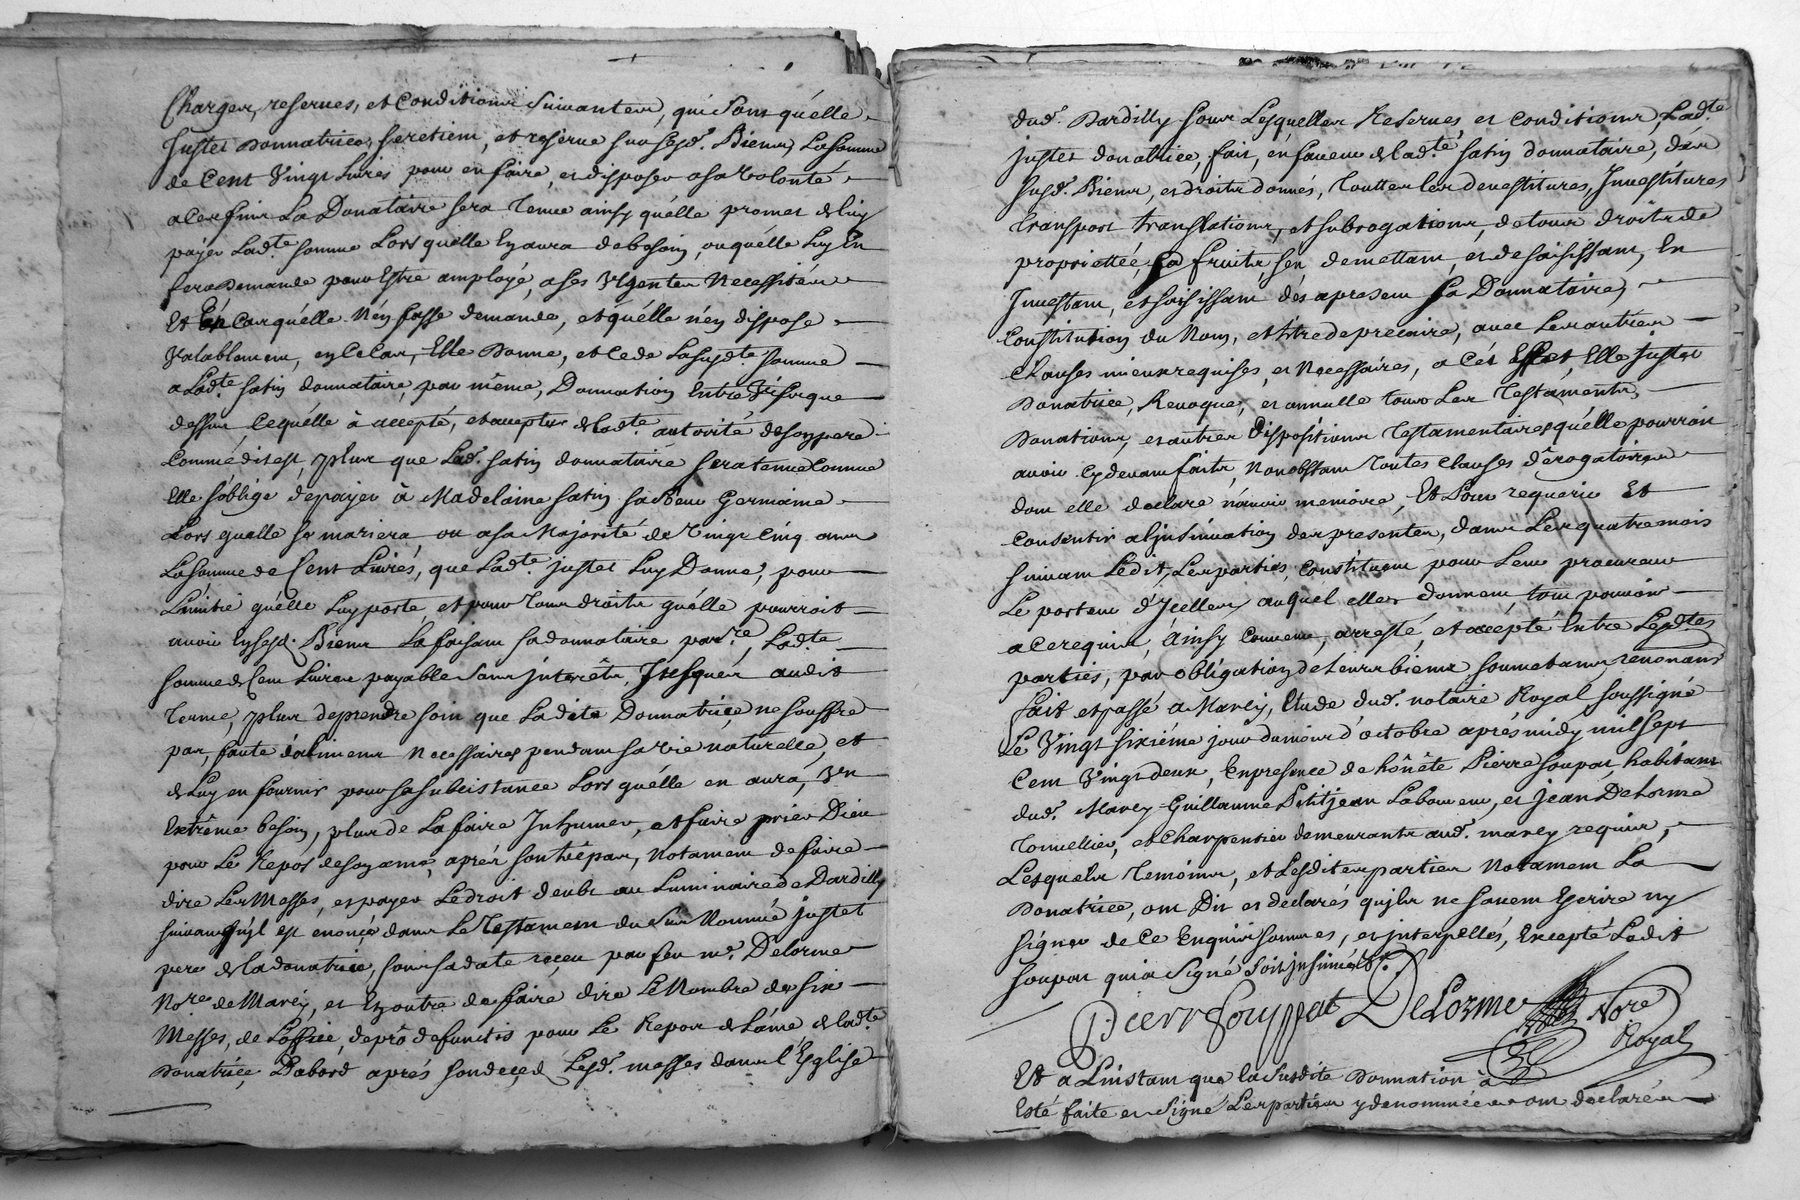 Charges, reserves, et Conditions Suivantes, qui sont qu'elle
Justet Donnatrice, se retient, et reserve sur sesd. Biens, La somme
de Cent Vingt Livres pour en faire, et disposer a sa volonté
a Ces fins La Donataire sera Tenue ainsy qu'elle promet de luy
payer Lad.te somme Lors quelle En aura de besoin, ou qu'elle Luy En
fera Demande pour Estre amployé, a ses Vrgentes Necessitées
Et En Cas qu'elle N'en fasse demande, et qu'elle n'en dispose
Valablement, en Ce Cas, Elle Donne, et Cede La susd.te somme
a Lad.te Satin donnataire, par même, Donnation Entre Vifs que
dessus Ce qu'elle à accepté, et accepte de lad.te autorité de son pere
Comme dit est, plus que Lad. Satin donnataire sera tenue Comme
Elle s'oblige de payer à Madelaine Satin sa soeur Germaine
Lors quelle se mariera ou a sa Majorité de Vingt Cinq ans
La somme de Cent Livres, que Lad.te Justet Luy Donne, pour
L'amitié qu'elle Luy porte, et pour tous droits qu'elle pourroit
avoir En sesd. Biens La faisant sa donnataire par.re, Lad.te
somme de Cent Livres payable Sans jnterêts, Jusques audit
Terme, plus de prendre soin que Ladite Donnatrice ne souffre
pas, faute d'alimens Necessaires pendant sa vie naturelle, et
de Luy en fournir pour sa subcistance Lors qu'elle en aura, Vn
Extrême besoin, plus de La faire Inhumer, et faire prier Dieu
pour Le Repos de son ame, aprés son trépas, Notament de faire
dire Les Messes, et payer Le droit deub au Luminaire de Dardilly
suivant qu'jl est enoncé dans Le Testament du Sur Nommé Justet
pere de la donatrice, sous sa date reçeu par feu m.e Delorme
No.re de Marcy, et En outre de faire dire Le Nombre de six
Messes, de L'office, de pro defunctis pour Le Repos de L'ame de lad.te
Donatrice, D'abord aprés son deced Lesd. messes dans l'Eglise
dud. Dardilly sous Lesquelles Reserves et Conditions, Lad.te
Justet donatrice, fait, en faveur de lad.te Satin donnataire, des
susd. Biens, et droits donnés, Touttes les devestitures, Investitures
Transport translations, et subrogations, de tous droits de
proprieté, et fruits s'en demettant, et desaisissant, En
Investant, et saisissant dés apresent sa Donnataire,
Constitution du Nom, et titre de precaire, avec Les autres
Clauses mieux requises, et Necessaires, a Cét Effet, Elle Justet
Donatrice, Revoque, et annulle tous Les Testaments,
Donations, et autres Dispositions Testamentaires qu'elle pourroit
avoir Cy devant faits, Nonobstant Toutes Clauses dérogatoires
dont elle declare n'avoir memoire, Et Pour requerir Et
Consentir a l'jnsinuation des presentes, dans Les quatre mois
suivant L'edit, Les parties, Constituent pour Leur procureur
Le porteur d'Jcelles auquel elles donnent, tout pouvoir
a Ce requis, Ainsy Convenu, arresté, et accépté Entre Lesd.tes
parties, par obligation de Leurs biens soumetans, renonans
fait et passé a Marcy, Etude dud. notaire Royal soussigné
Le Vingt sixiéme jour du mois d'octobre aprés midy mil sept
Cent Vingt deux, En presence de hônête Pierre Soupat, habitant
dud. Marcy Guillaume Petitjean Laboureur, et Jean Delorme
Tonnellier, et Charpentier demeurants aud. marcy requis,
Lesquels Temoins, et Lesdites parties Notament La
Donatrice, ont Dit et declarés qu'jls ne savent Escrire ny
Signer de Ce Enquis sommes, et jnterpellés, Excepté Ledit
Soupat qui a Signé soit jnsinué
Pierre Souppat Delorme No.re
Royal
Et a L'instant que la susdite Donnation à
Esté faite et Signé Les parties y denommées ont declarées